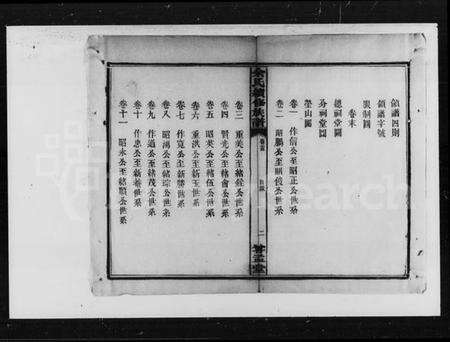 領譜四則
領譜字號
服制圖
卷末
總祠堂圖
分祠堂圖
塋山圖
卷一 作信公至昭正公世系
卷二 昭鵬公至昭俊公世系
余氏續修族譜 卷首 目錄 二
卷三 重美公至緒銓公世系
卷四 賢光公至緒會公世系
卷五 昭美公至緒伍公世系
卷六 重洪公至新玉世系
卷七 作寬公至新勝世系
卷八 昭鴻公至緒琮公世系
卷九 作通公至緒茂公世系
卷十 作忠公至新榜世系
卷十一 昭永公至緒順公世系